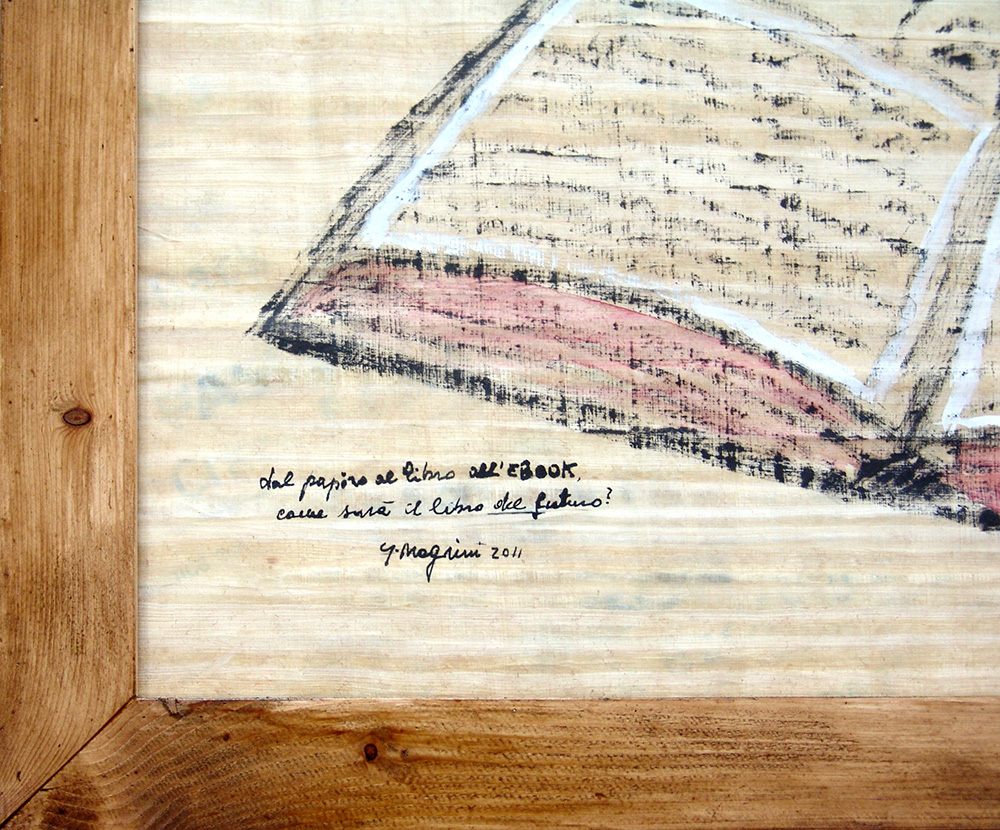 dal papiro al libro all'EBOOK,
come sarà il libro del futuro?
G. Magrini 2011